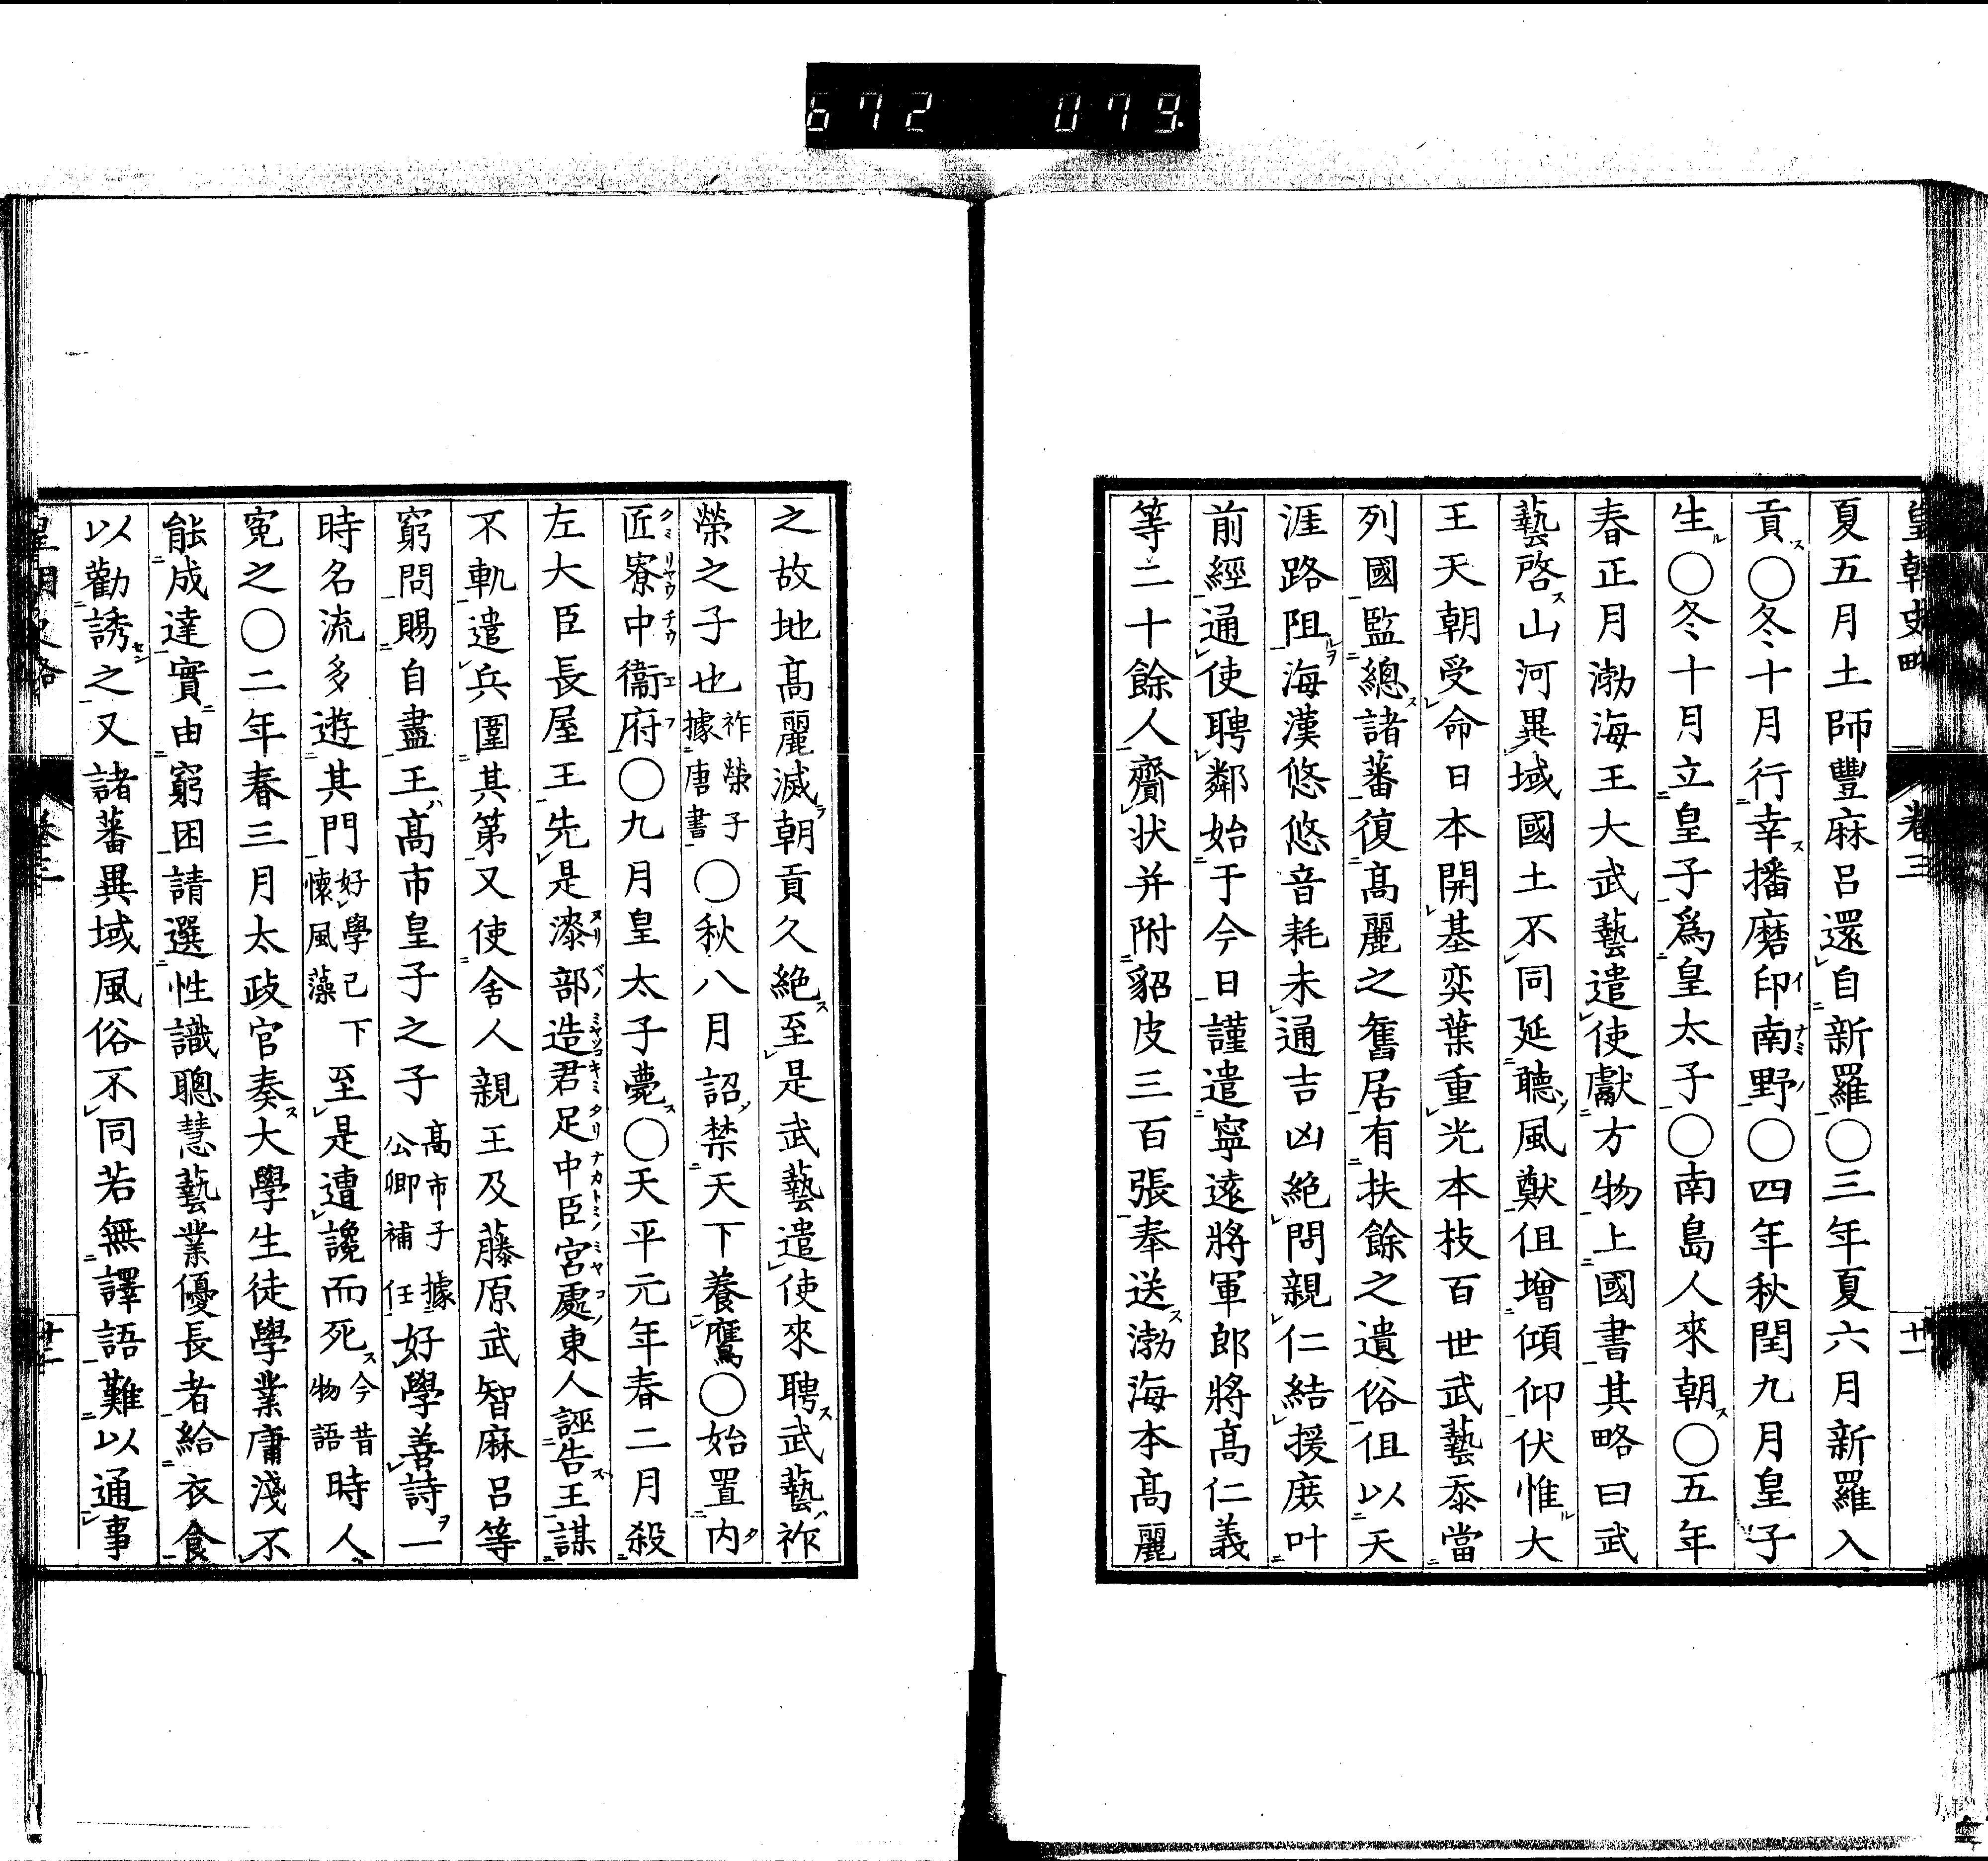 672 079
皇朝史略 卷三 十一
夏五月土師豐麻呂還自新羅〇三年夏六月新羅入
貢〇冬十月行幸播磨印南野〇四年秋閏九月皇子
生〇冬十月立皇子爲皇太子〇南島人來朝〇五年
春正月渤海王大武藝遣使獻方物上國書其略曰武
藝啓山河異域國土不同延聽風猷但增傾仰伏惟大
王天朝受命日本開基奕葉重光本枝百世武藝忝當
列國監總諸蕃復高麗之舊居有扶餘之遺俗但以天
涯路阻海漢悠悠音耗未通吉凶絕問親仁結援庶叶
前經通使聘鄰始于今日謹遣寧遠將軍郎將高仁義
等二十餘人齎狀并附貂皮三百張奉送渤海本高麗
之故地高麗滅朝貢久絕至是武藝遣使來聘武藝祚
榮之子也祚榮子據唐書〇秋八月詔禁天下養鷹〇始置内
匠寮中衞府〇九月皇太子薨〇天平元年春二月殺
左大臣長屋王先是漆部造君足中臣宮處東人誣告王謀
不軌遣兵圍其第又使舍人親王及藤原武智麻呂等
窮問賜自盡王高市皇子之子高市子據公卿補任好學善詩一
時名流多遊其門好學已下懷風藻至是遭讒而死今昔物語時人
冤之〇二年春三月太政官奏大學生徒學業庸淺不
能成達實由窮困請選性識聰慧藝業優長者給衣食
以勸誘之又諸蕃異域風俗不同若無譯語難以通事
皇朝史略 卷三 十二